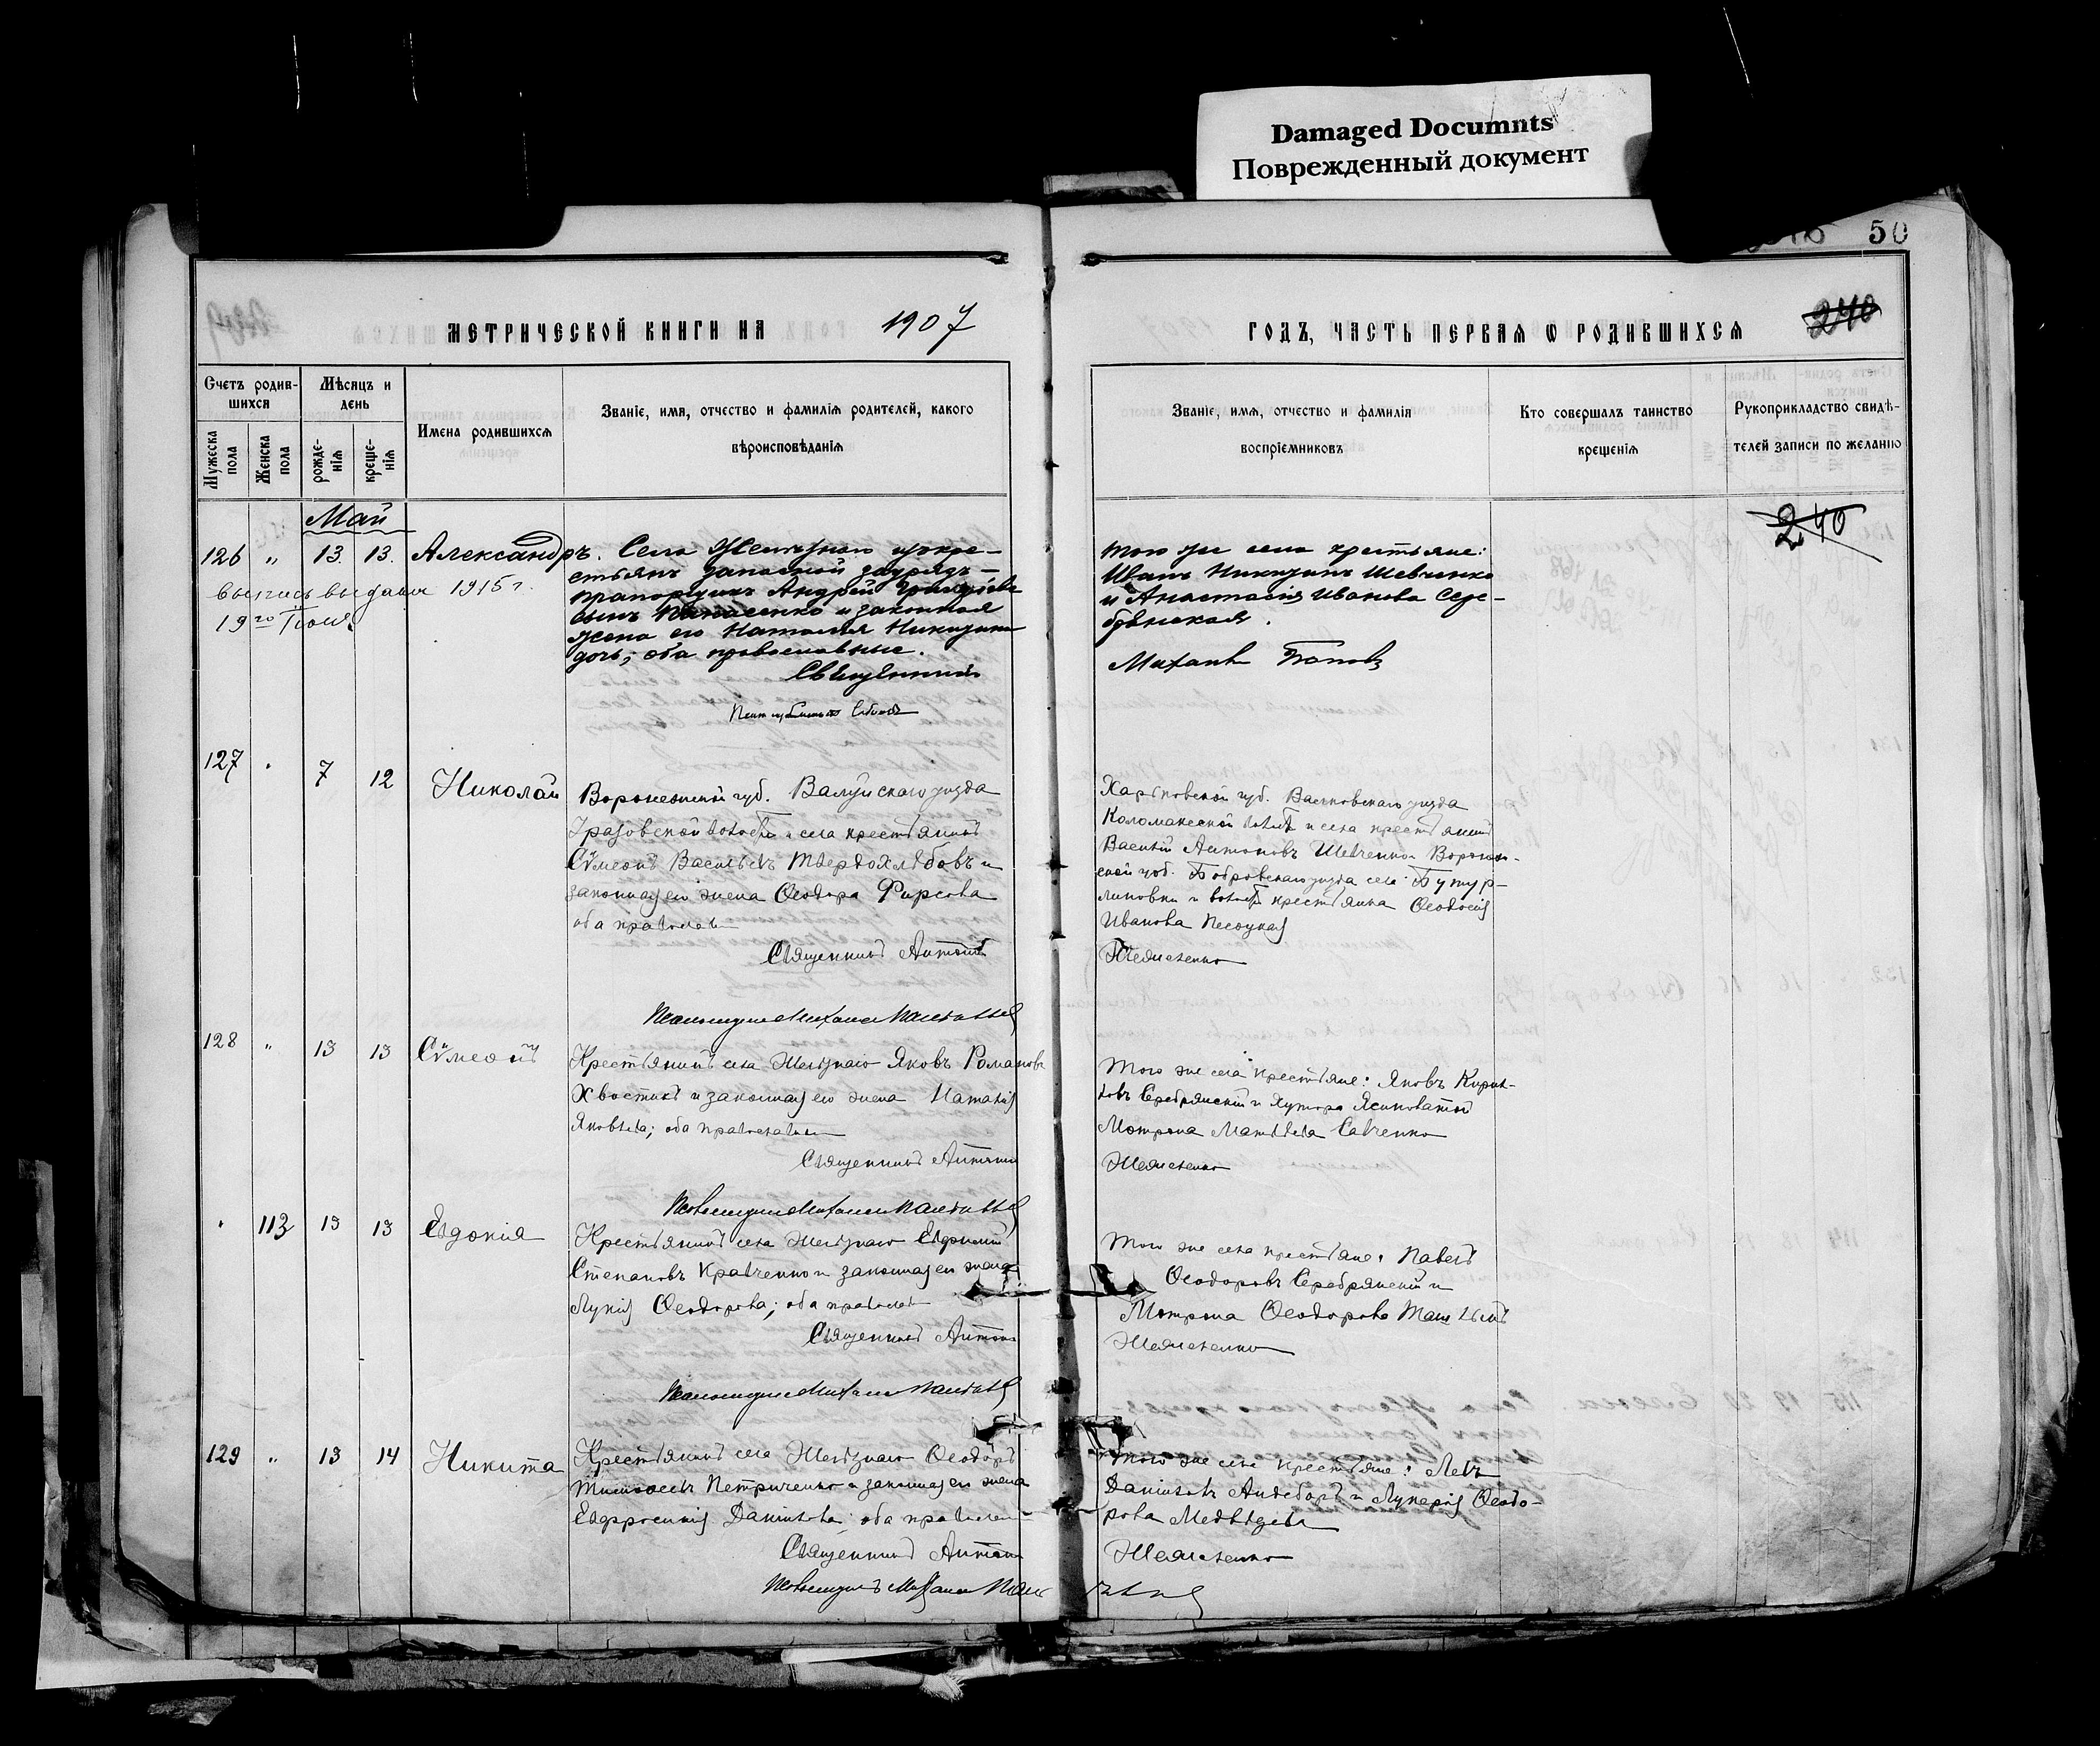 Damaged Documnts
Поврежденный документ
50
МЕТРИЧЕСКОЙ КНИГИ НА 1907
ГОДЪ, ЧАСТЬ ПЕРВАЯ Ѡ РОДИВШИХСЯ
240
Счетъ родив-
шихся
Мужеска пола
Женска пола
Мѣсяцъ и
день
рожде-
нія
креще-
нія
Имена родившихся
Званіе, имя, отчество и фамилія родителей, какого
вѣроисповѣданія
Званіе, имя, отчество и фамилія
воспріемниковъ
Кто совершалъ таинство
крещенія
Рукоприкладство свидѣ-
телей записи по желанію
240
Май
126 " 13. 13. Александръ.
выпись выдана 1915 г.
19го Іюня
Села Желѣзнаго изъ кре-
стьянъ запасной зауряд-
прапорщикъ Андрей Григорьевъ
сынъ Панасенко и законная
жена его Наталія Никитина
дочь; оба православные.
Священникъ
Того же села крестьяне:
Иванъ Никитинъ Шевченко
и Анастасія Иванова Сере-
брянская.
Михаилъ Поповъ
127 " 7 12 Николай
Воронежской губ. Валуйскаго уѣзда
Уразовской волости и села крестьянинъ
Сѵмеонъ Васильевъ Твердохлѣбовъ и
законная его жена Ѳеодора Фирсова
оба правосл
Священникъ Антоній
Харьковской губ. Валковскаго уѣзда
Коломакской волости и села крестьянинъ
Василій Антоновъ Шевченко и Воронеж-
ской губ. Бобровскаго уѣзда села Бутур-
линовки и волости крестьянка Ѳеодосія
Иванова
128 " 13 13 Сѵмеонъ
Крестьянинъ села Желѣзнаго Яковъ Романовъ
Хвостикъ и законная его жена Наталія
Яковлева; оба православн
Священникъ Антоній
Того же села крестьяне: Яковъ Кирил-
ловъ Серебрянскій и хутора Ясиноватой
Мотрона Матвѣева Савченко
" 113 13 13 Евдокія
Крестьянинъ села Желѣзнаго Евфимій
Степановъ Кравченко и законная его жена
Лукія Ѳеодорова; оба правосл
Священникъ Антоній
Того же села крестьяне: Павелъ
Ѳеодоровъ Серебрянскій и
Мотрона Ѳеодорова
129 " 13 14 Никита
Крестьянинъ села Желѣзнаго Ѳеодоръ
Тимоѳеевъ Петриченко и законная его жена
Евфросинія Даніилова; оба правосл
Священникъ Антоній
Того же села крестьяне: Левъ
Даніиловъ и Лукерія Ѳеодо-
рова Медвѣдева